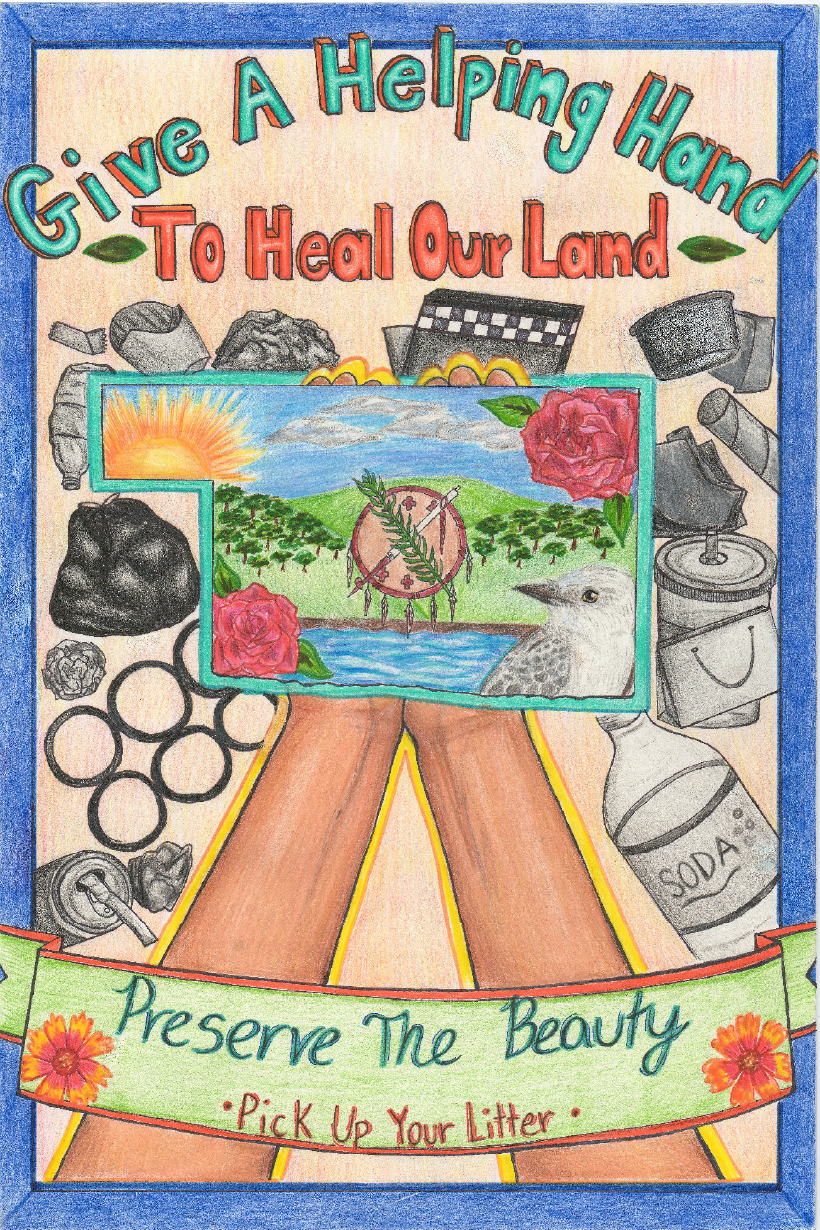 Give A Helping Hand
To Heal Our Land
SODA
Preserve The Beauty
•Pick Up Your Litter•